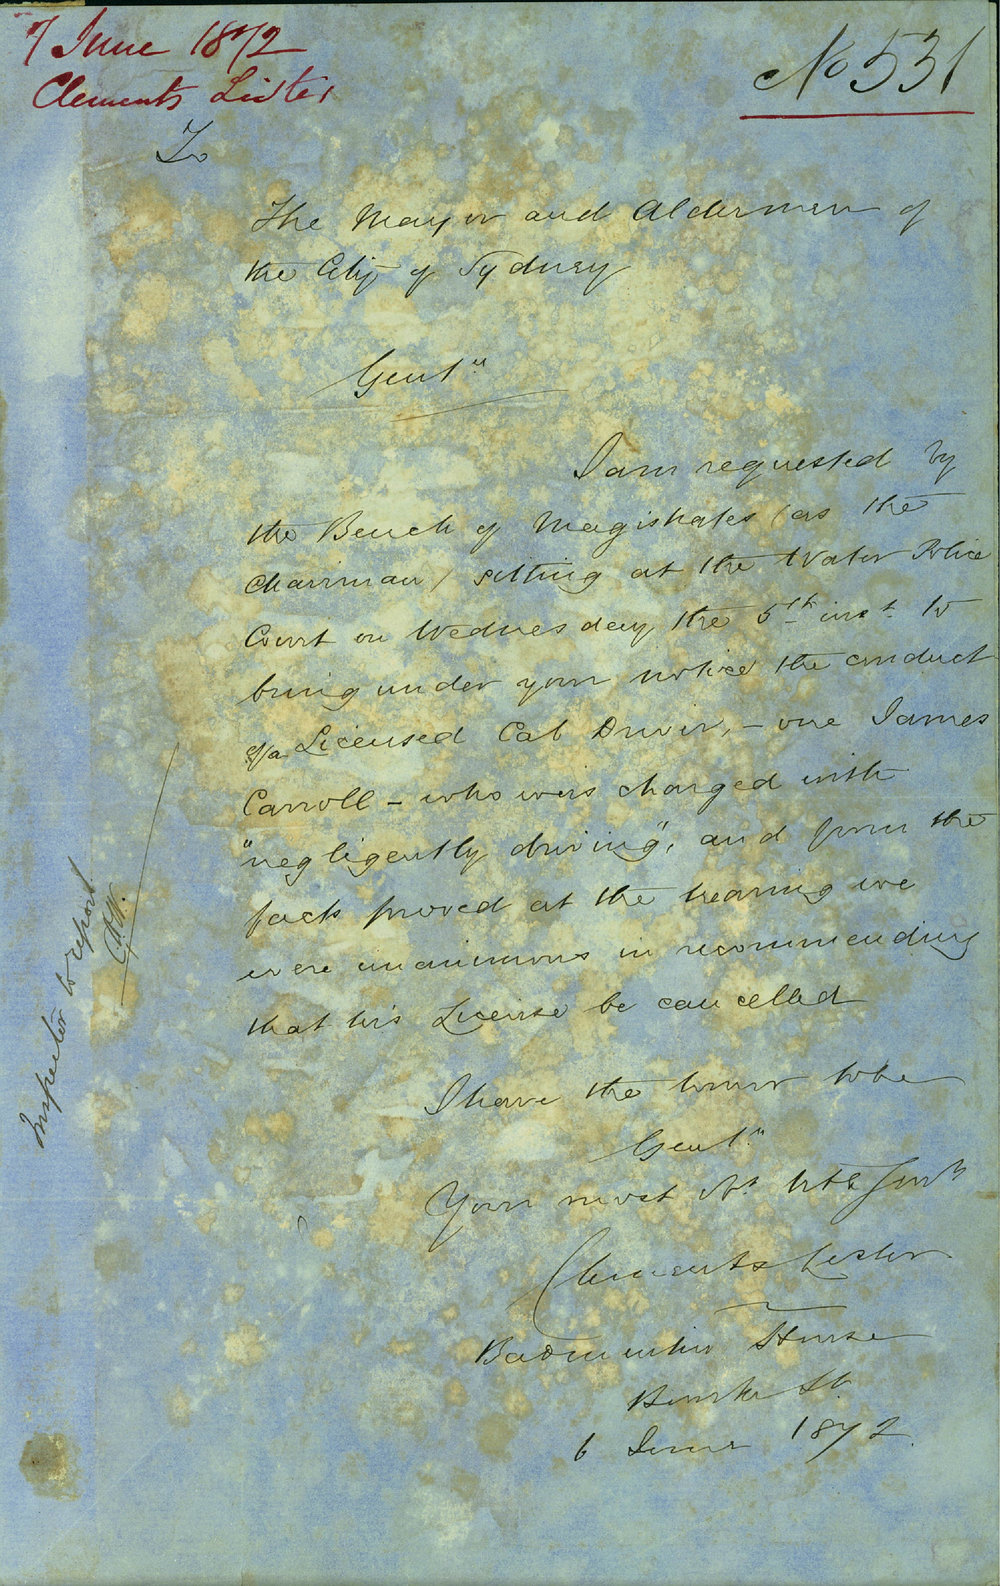 7 June 1872
Clements Lister
No 531
To
The Mayor and Aldermen of
the City of Sydney
Gentn
I am requested by
the Bench of Magistrates (as the
Chairman) sitting at the Water Police
Court on Wednesday the 5th inst. to
bring under your notice the conduct
of a Licensed Cab Driver, - one James
Carroll - who was charged with
"negligently driving", and from the
facts proved at the hearing we
were unanimous in recommending
that his License be cancelled
I have the honor to be
Gentn
Your most Obt. Servt
Clements Lester
Badminton House
Bourke St.
6 June 1872.
Inspector to report.